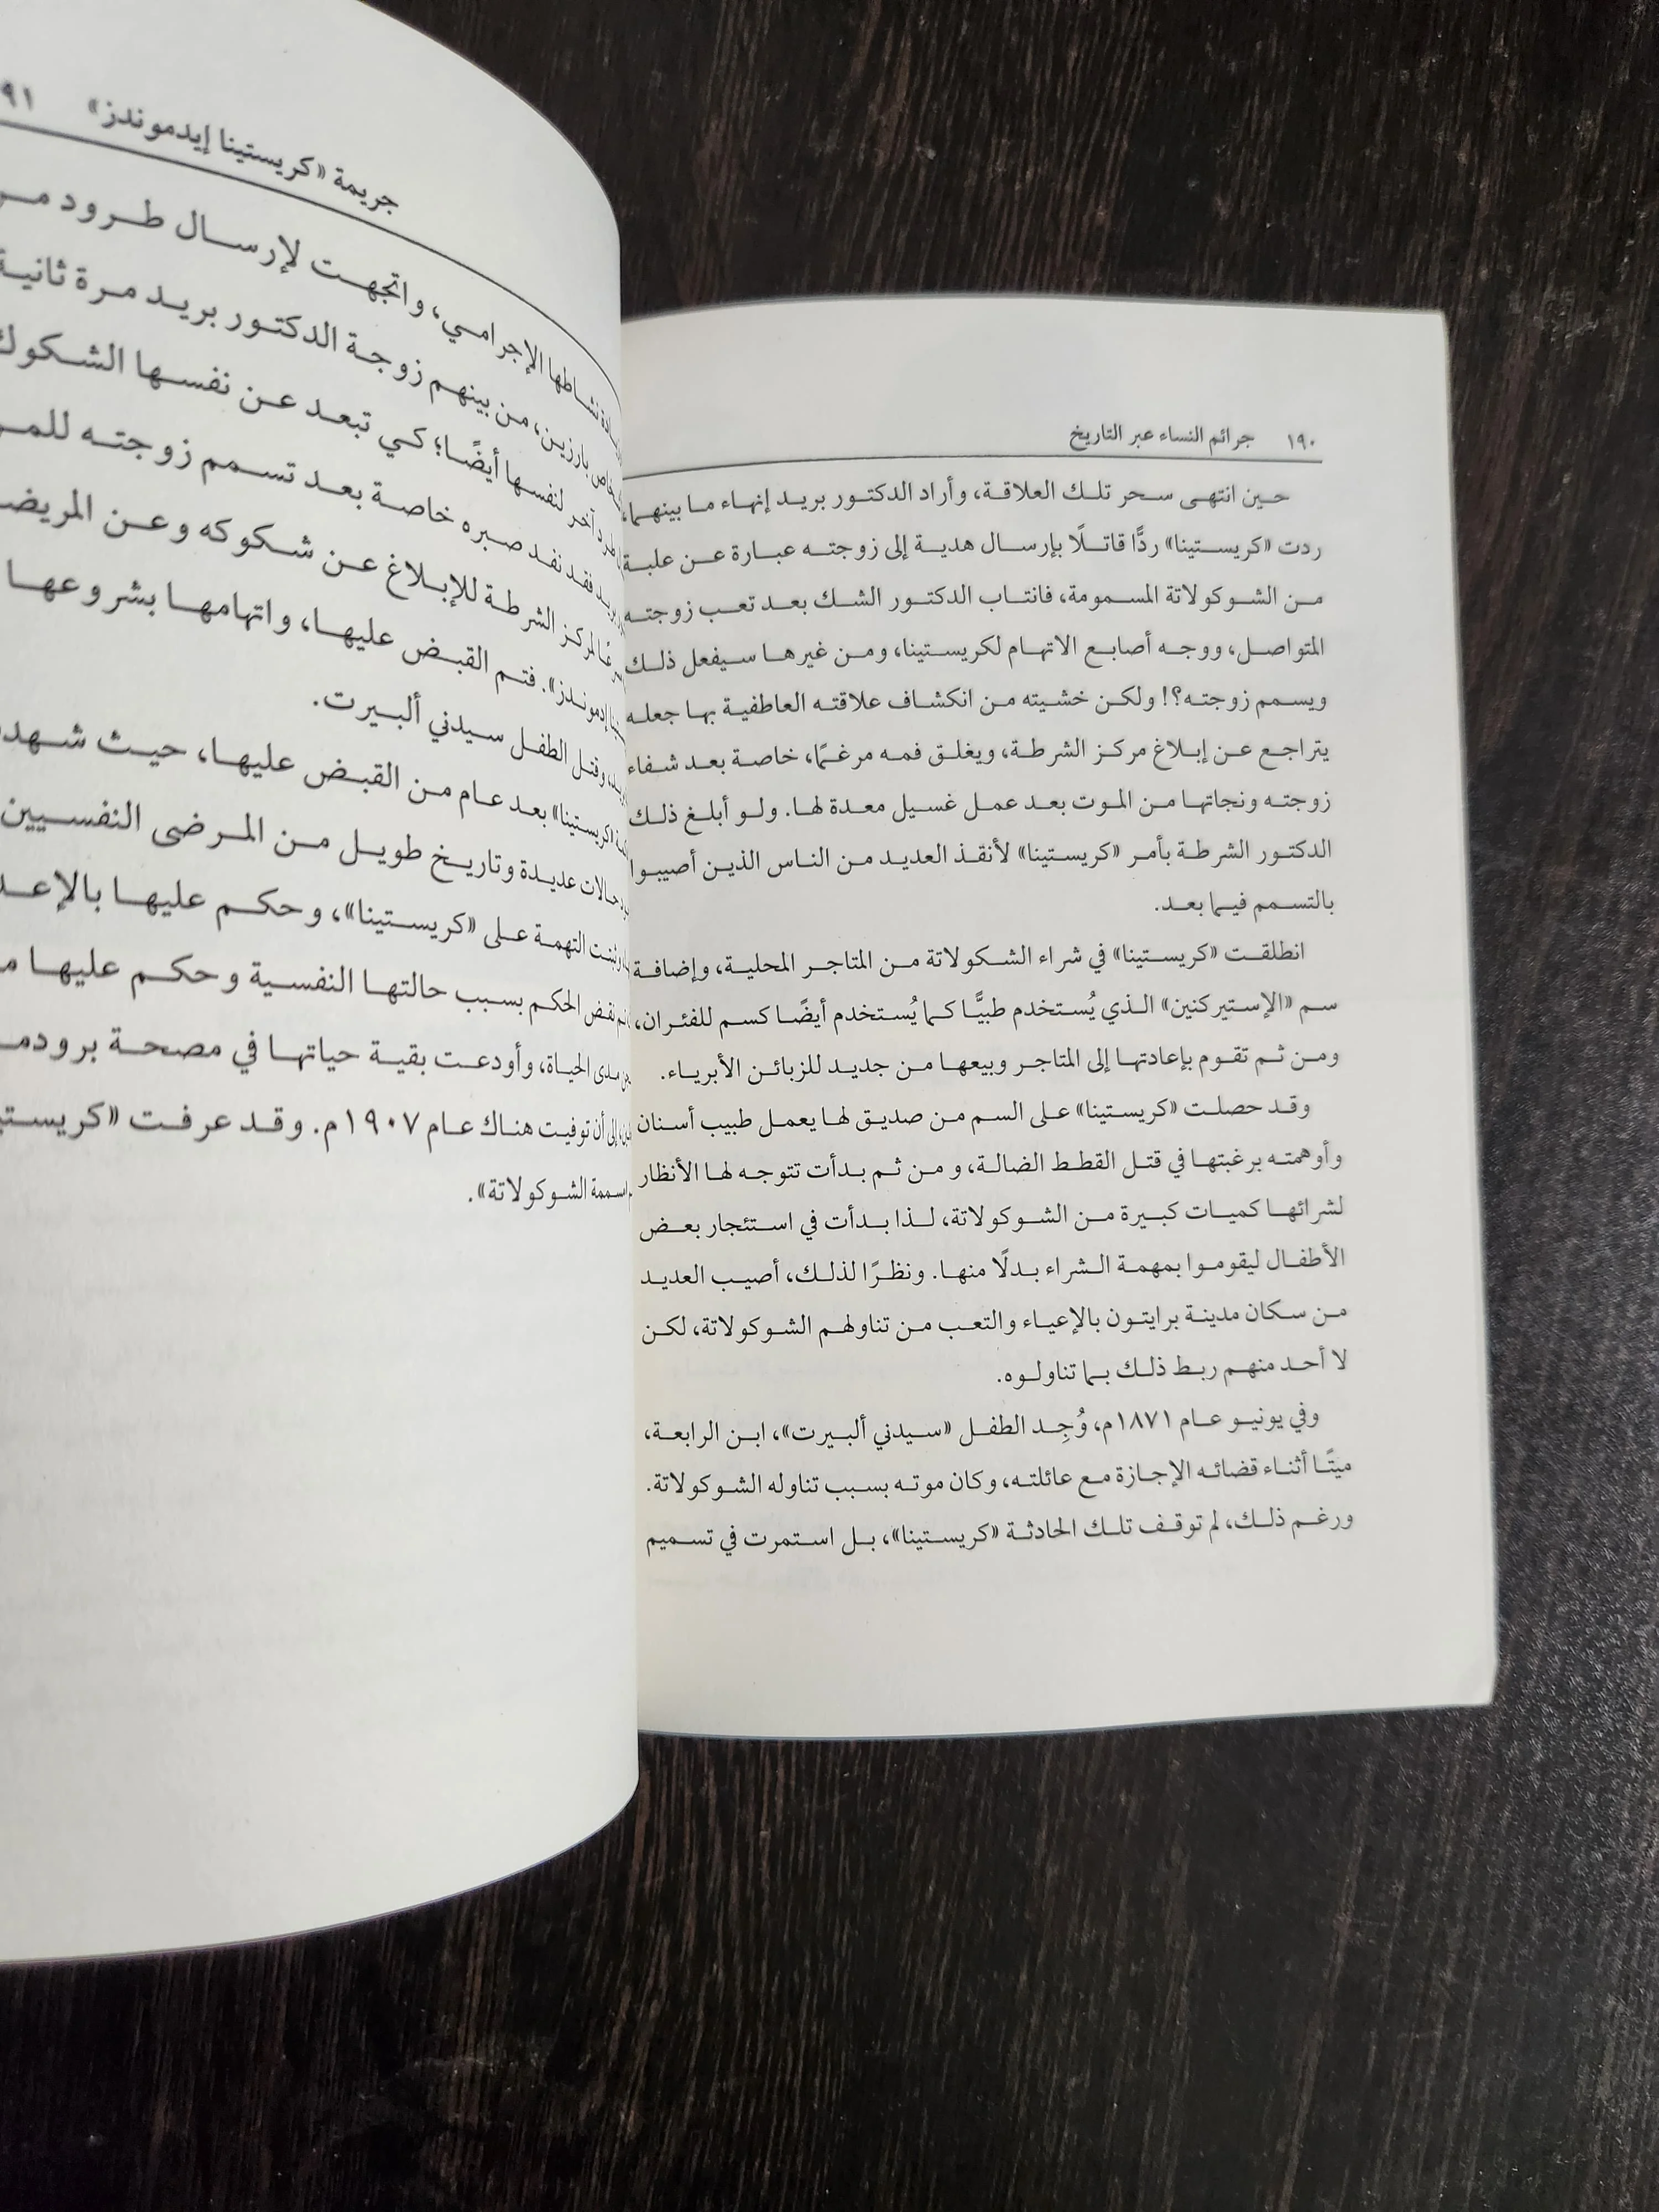 ١٩٠ جرائم النساء عبر التاريخ
حين انتهى سحر تلك العلاقة، وأراد الدكتور بريد إنهاء ما بينهما،
ردت «كريستينا» ردًّا قاتلًا بإرسال هدية إلى زوجته عبارة عن علبة
من الشوكولاتة المسمومة، فانتاب الدكتور الشك بعد تعب زوجته
المتواصل، ووجه أصابع الاتهام لكريستينا، ومن غيرها سيفعل ذلك
ويسمم زوجته؟! ولكن خشيته من انكشاف علاقته العاطفية بها جعله
يتراجع عن إبلاغ مركز الشرطة، ويغلق فمه مرغمًا، خاصة بعد شفاء
زوجته ونجاتها من الموت بعد عمل غسيل معدة لها. ولو أبلغ ذلك
الدكتور الشرطة بأمر «كريستينا» لأنقذ العديد من الناس الذين أصيبوا
بالتسمم فيما بعد.
انطلقت «كريستينا» في شراء الشكولاتة من المتاجر المحلية، وإضافة
سم «الإستيركنين» الذي يُستخدم طبيًّا كما يُستخدم أيضًا كسم للفئران،
ومن ثم تقوم بإعادتها إلى المتاجر وبيعها من جديد للزبائن الأبرياء.
وقد حصلت «كريستينا» على السم من صديق لها يعمل طبيب أسنان
وأوهمته برغبتها في قتل القطط الضالة، ومن ثم بدأت تتوجه لها الأنظار
لشرائها كميات كبيرة من الشوكولاتة، لذا بدأت في استئجار بعض
الأطفال ليقوموا بمهمة الشراء بدلًا منها. ونظرًا لذلك، أصيب العديد
من سكان مدينة برايتون بالإعياء والتعب من تناولهم الشوكولاتة، لكن
لا أحد منهم ربط ذلك بما تناولوه.
وفي يونيو عام ١٨٧١م، وُجِد الطفل «سيدني ألبيرت»، ابن الرابعة،
ميتًا أثناء قضائه الإجازة مع عائلته، وكان موته بسبب تناوله الشوكولاتة.
ورغم ذلك، لم توقف تلك الحادثة «كريستينا»، بل استمرت في تسميم
جريمة «كريستينا إيدموندز» ٩١
نشاطها الإجرامي، واتجهت لإرسال طرود
بارزين، من بينهم زوجة الدكتور بريد مرة ثانية
آخر لنفسها أيضًا؛ كي تبعد عن نفسها الشكوك
فقد نفد صبره خاصة بعد تسمم زوجته
لمركز الشرطة للإبلاغ عن شكوكه وعن
إدموندز». فتم القبض عليها، واتهامها بشروعها
وقتل الطفل سيدني ألبيرت.
«كريستينا» بعد عام من القبض عليها، حيث
حالات عديدة وتاريخ طويل من المرضى النفسيين
التهمة على «كريستينا»، وحكم عليها
نقض الحكم بسبب حالتها النفسية وحكم عليها
مدى الحياة، وأودعت بقية حياتها في مصحة
إلى أن توفيت هناك عام ١٩٠٧م. وقد عرفت
الشوكولاتة».